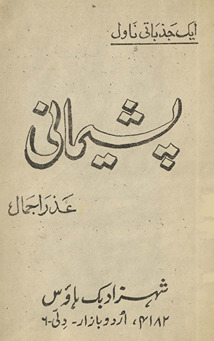 ایک جذباتی ناول
پشیمانی
عذرا جمال
شہزاد بک ہاؤس
۴۱۸۲، اُردو بازار۔ دلّی-۶